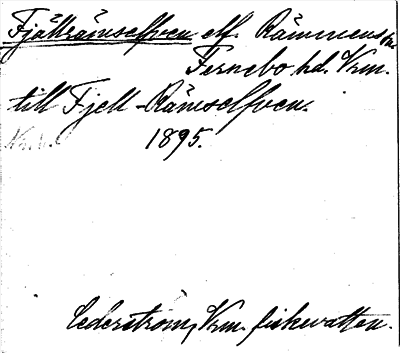 Fjällrämselfven elf. Rämmens
Fernebo hd. Vrm.
till Fjell-Rämselfven.
1895.
Cederström, Vrm. fiskevatten.